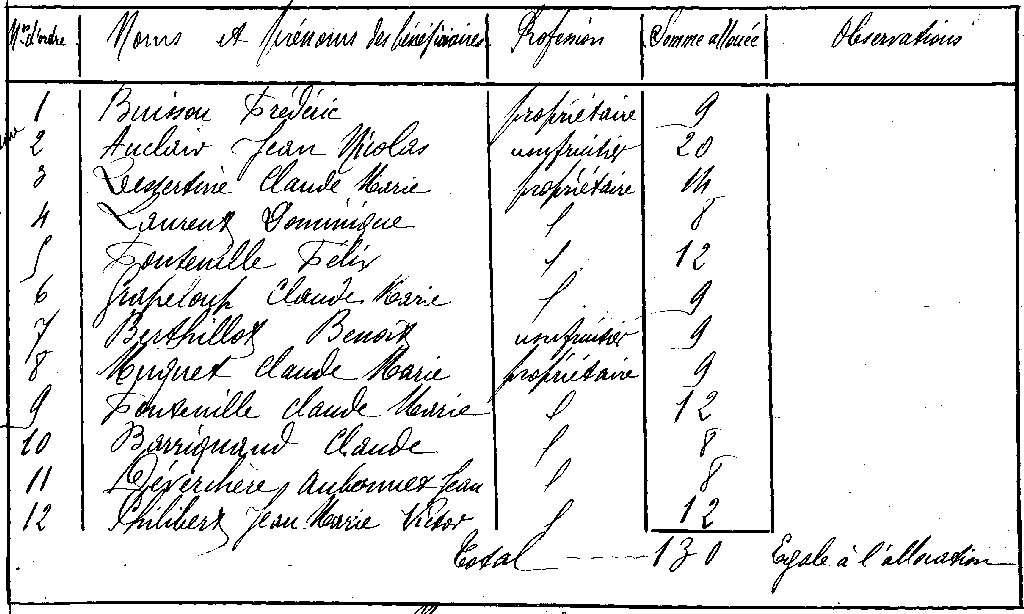 Nos d'ordre Noms et Prénoms des bénéficiaires Profession Somme allouée Observations
1 Buisson Frédéric propriétaire 9
2 Auclair Jean Nicolas usufruitier 20
3 Dessertine Claude Marie propriétaire 14
4 Laurent Dominique 8
5 Fonteville Félix 12
6 Grapeloup Claude Marie 9
7 Berthillot Benoît usufruitier 9
8 Muguet Claude Marie propriétaire 9
9 Fonteville Claude Marie 12
10 Barriquand Claude 8
11 Déverchère Aubonnet Jean 8
12 Philibert Jean Marie Victor 12
Total 130 Egale à l'allocation